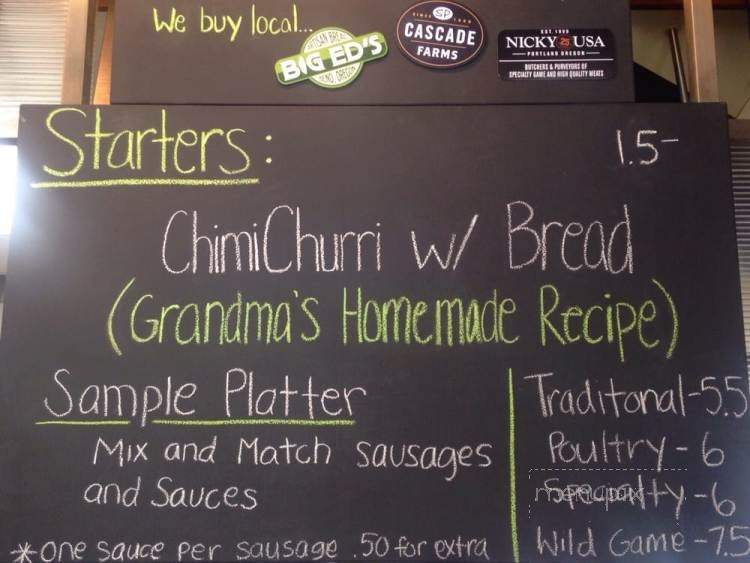 We buy local...
ARTISAN BREAD
BIG ED'S
OREGON
SINCE 1990
SP
CASCADE
FARMS
EST. 1990
NICKY USA
PORTLAND OREGON
BUTCHERS & PURVEYORS OF
SPECIALTY GAME AND HIGH QUALITY MEATS
Starters: 1.5-
ChimiChurri w/ Bread
(Grandma's Homemade Recipe)
Sample Platter
Mix and Match sausages
and Sauces
*one sauce per sausage .50 for extra
Traditonal-5.5
Poultry-6
Specialty-6
Wild Game-7.5
menupix